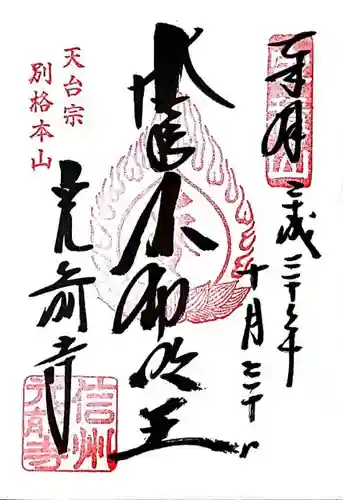 奉拝
平成二十年
十月二十日
不動明王
天台宗
別格本山
光前寺
信州
光前寺